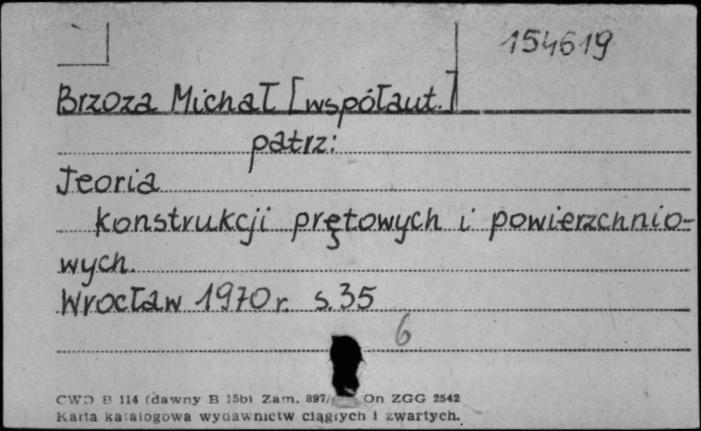 154619
Brzoza Michał [współaut.]
patrz:
Teoria
konstrukcji prętowych i powierzchnio-
wych.
Wrocław 1970 r. s. 35
6
CWD B 114 (dawny B 15b) Zam. 897/ On ZGG 2542
Karta katalogowa wydawnictw ciągłych i zwartych.